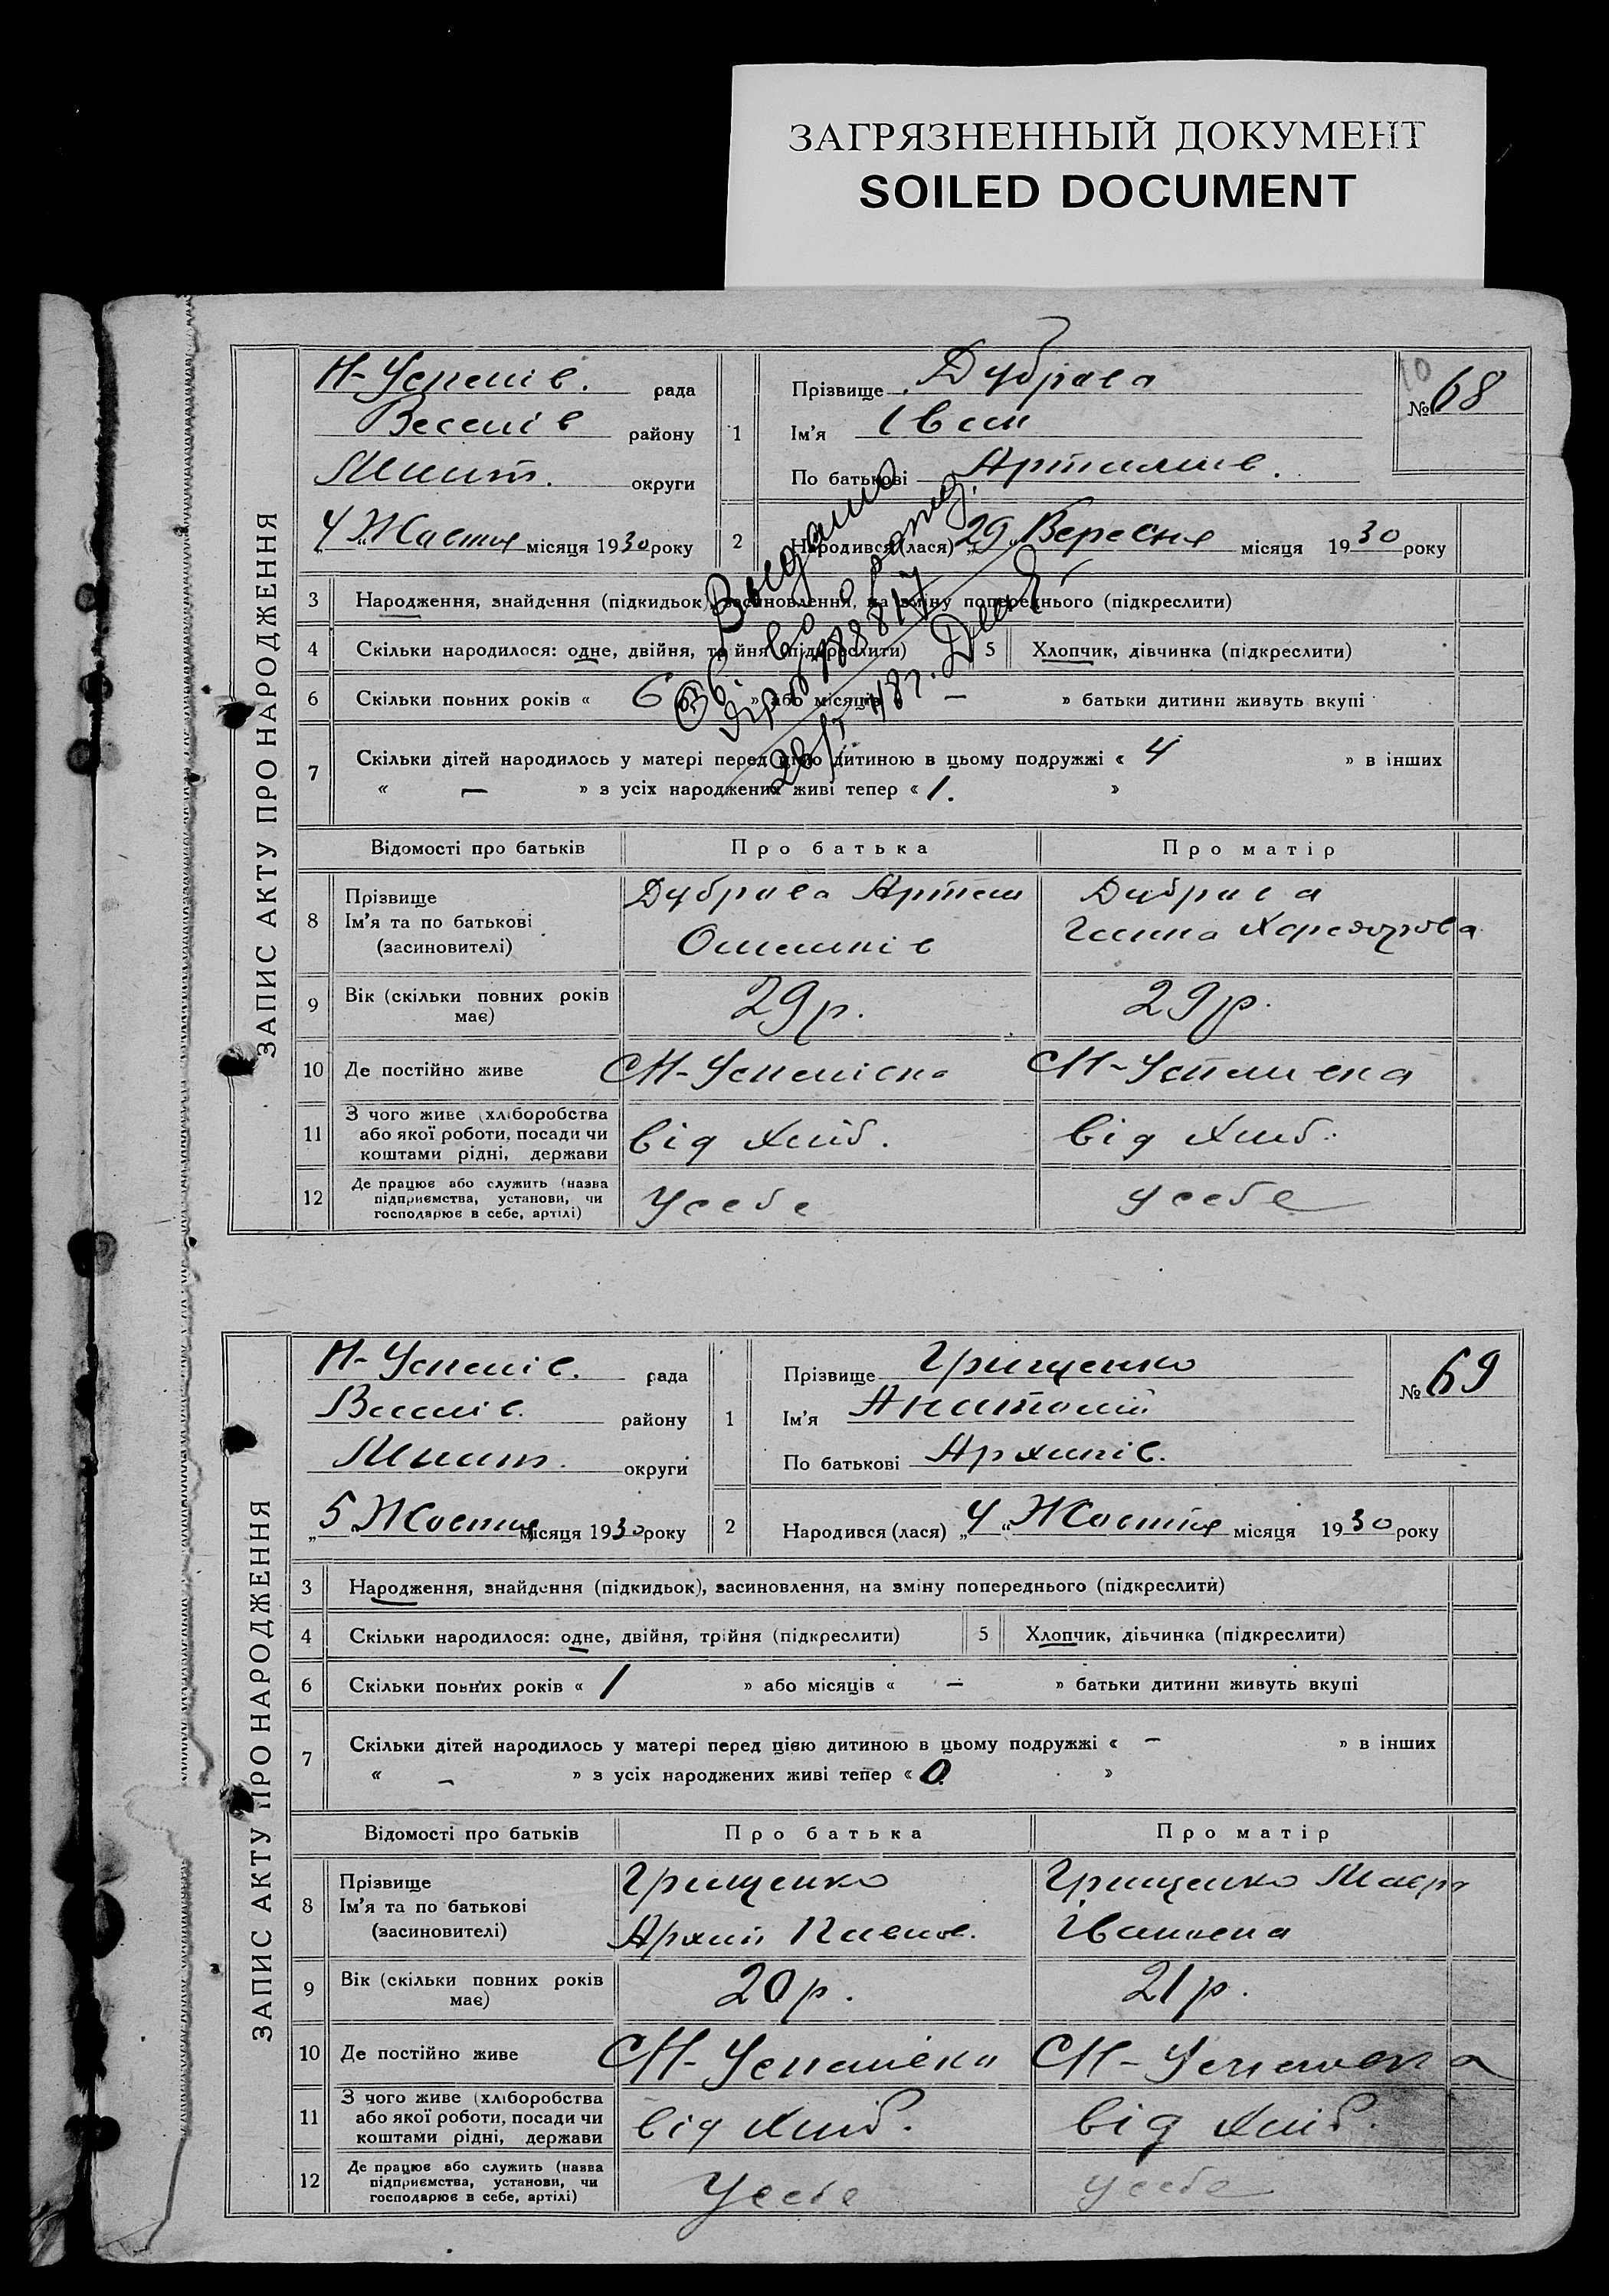 ЗАГРЯЗНЕННЫЙ ДОКУМЕНТ
SOILED DOCUMENT
ЗАПИС АКТУ ПРО НАРОДЖЕННЯ
Н-Успенів. рада
Веселів району
Мелит. округи
„4“ Жовтня місяця 1930 року
1 Прізвище Дубрава
Ім'я Іван
По батькові Артемів.
10
№ 68
2 Народився (лася) „29“ Вересня місяця 1930 року
3 Народження, знайдення (підкидьок), засиновлення, на зміну попереднього (підкреслити)
4 Скільки народилося: одне, двійня, трійня (підкреслити) 5 Хлопчик, дівчинка (підкреслити)
6 Скільки повних років « 6 » або місяців « — » батьки дитини живуть вкупі
7 Скільки дітей народилось у матері перед цією дитиною в цьому подружжі « 4 » в інших
« — » з усіх народжених живі тепер « 1. »
Выдано
Св. во о рожд.
Відомості про батьків Про батька Про матір
8 Прізвище
Ім'я та по батькові
(засиновителі)
Дубрава Артем
Дубрава
Ганна
9 Вік (скільки повних років
має)
29 р. 29 р.
10 Де постійно живе С Н-Успенівка С Н-Успенівка
11 З чого живе (хліборобства
або якої роботи, посади чи
коштами рідні, держави
від хліб. від хліб.
12 Де працює або служить (назва
підприємства, установи, чи
господарює в себе, артілі)
У себе у себе
ЗАПИС АКТУ ПРО НАРОДЖЕННЯ
Н-Успенів. рада
Веселів. району
Мелит. округи
„5“ Жовтня місяця 1930 року
1 Прізвище Грищенко
Ім'я Анатолій
По батькові Архипів.
№ 69
2 Народився (лася) „4“ Жовтня місяця 1930 року
3 Народження, знайдення (підкидьок), засиновлення, на зміну попереднього (підкреслити)
4 Скільки народилося: одне, двійня, трійня (підкреслити) 5 Хлопчик, дівчинка (підкреслити)
6 Скільки повних років « 1 » або місяців « — » батьки дитини живуть вкупі
7 Скільки дітей народилось у матері перед цією дитиною в цьому подружжі « — » в інших
« — » з усіх народжених живі тепер « 0 »
Відомості про батьків Про батька Про матір
8 Прізвище
Ім'я та по батькові
(засиновителі)
Грищенко
Архип Павлов.
Грищенко Мавра
Івановна
9 Вік (скільки повних років
має)
20 р. 21 р.
10 Де постійно живе С Н-Успенівка С Н-Успенівка
11 З чого живе (хліборобства
або якої роботи, посади чи
коштами рідні, держави
від хліб. від хліб.
12 Де працює або служить (назва
підприємства, установи, чи
господарює в себе, артілі)
У себе у себе